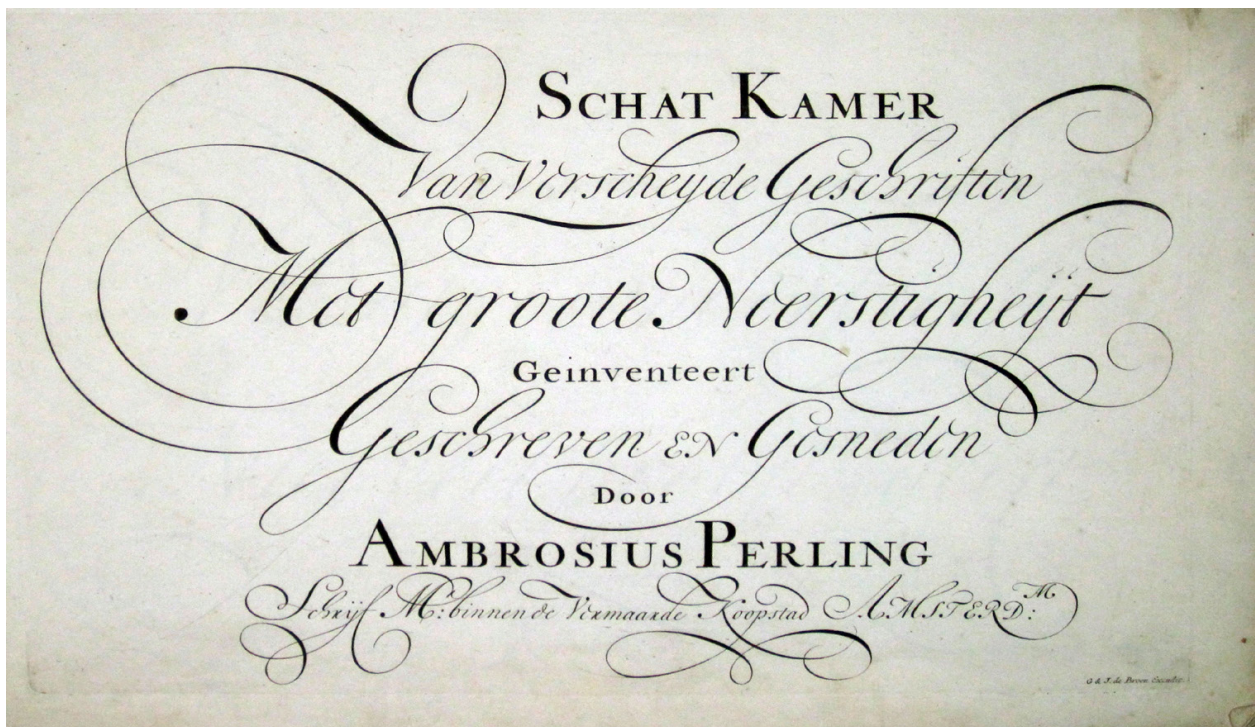 SCHAT KAMER
Van Verscheyde Geschriften
Met groote Neerstigheijt
Geinventeert
Geschreven EN Gesneden
Door
AMBROSIUS PERLING
Schrijf Mr: binnen de Vermaarde Koopstad AMSTERDM:
G & J. de Broen Excudit.